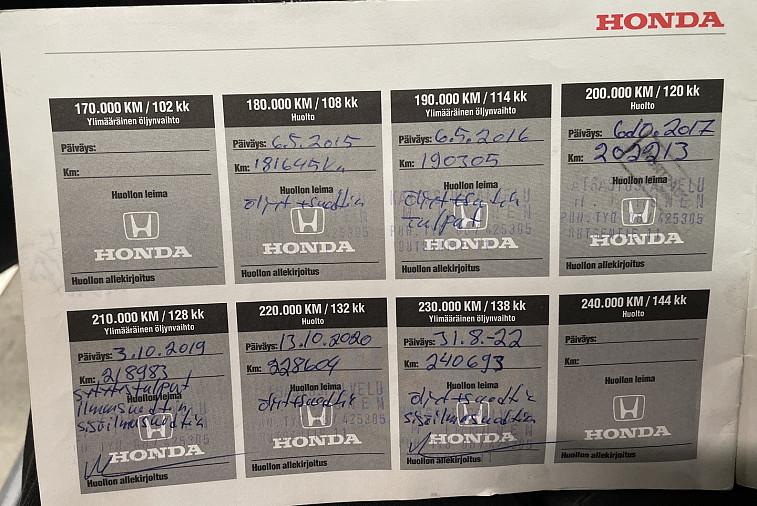 HONDA
170.000 KM / 102 kk
Ylimääräinen öljynvaihto
Päiväys:
Km:
Huollon leima
HONDA
Huollon allekirjoitus
180.000 KM / 108 kk
Huolto
Päiväys: 6.5.2015
Km: 181645 km
Huollon leima
öljyt + suodatin
HONDA
Huollon allekirjoitus
190.000 KM / 114 kk
Ylimääräinen öljynvaihto
Päiväys: 6.5.2016
Km: 190305
Huollon leima
tulpat
HONDA
Huollon allekirjoitus
200.000 KM / 120 kk
Huolto
Päiväys: 6.10.2017
Km: 202213
Huollon leima
HONDA
Huollon allekirjoitus
210.000 KM / 128 kk
Ylimääräinen öljynvaihto
Päiväys: 3.10.2019
Km: 218983
Huollon leima
HONDA
Huollon allekirjoitus
220.000 KM / 132 kk
Huolto
Päiväys: 13.10.2020
Km: 228609
Huollon leima
HONDA
Huollon allekirjoitus
230.000 KM / 138 kk
Ylimääräinen öljynvaihto
Päiväys: 31.8.-22
Km: 240693
Huollon leima
HONDA
Huollon allekirjoitus
240.000 KM / 144 kk
Huolto
Päiväys:
Km:
Huollon leima
HONDA
Huollon allekirjoitus